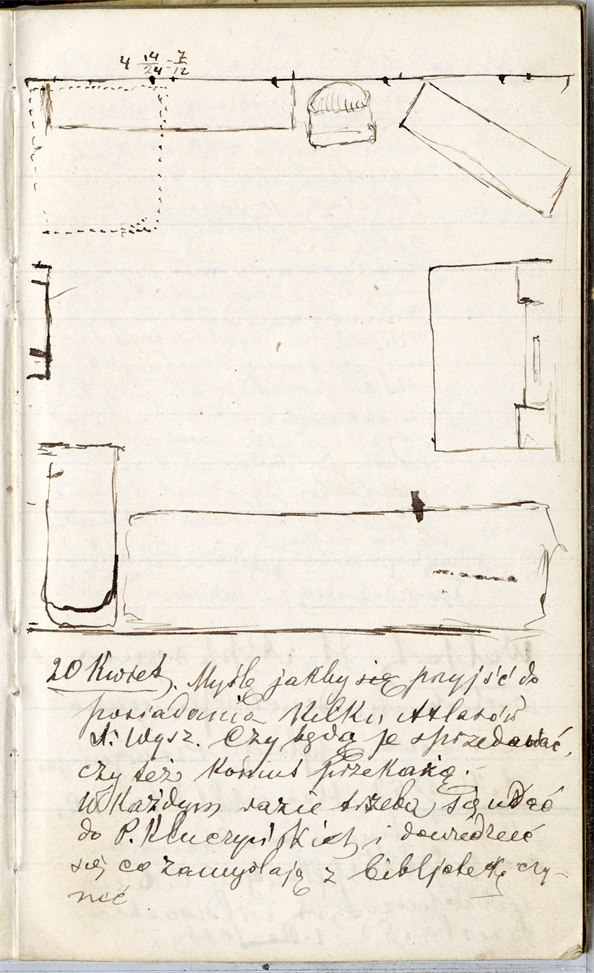 4 14/24 - 7/12
20 Kwiet. Myślę jakby się przyjść do
posiadania Kilku Atlasów
Ś. Wysz. Czy będą je sprzedawać,
czy też komuś przekażą.
W Każdym razie trzeba się udać
do P. Kluczyńskich i dowiedzieć
się co zamyślają z bibljoteką czy-
nić.